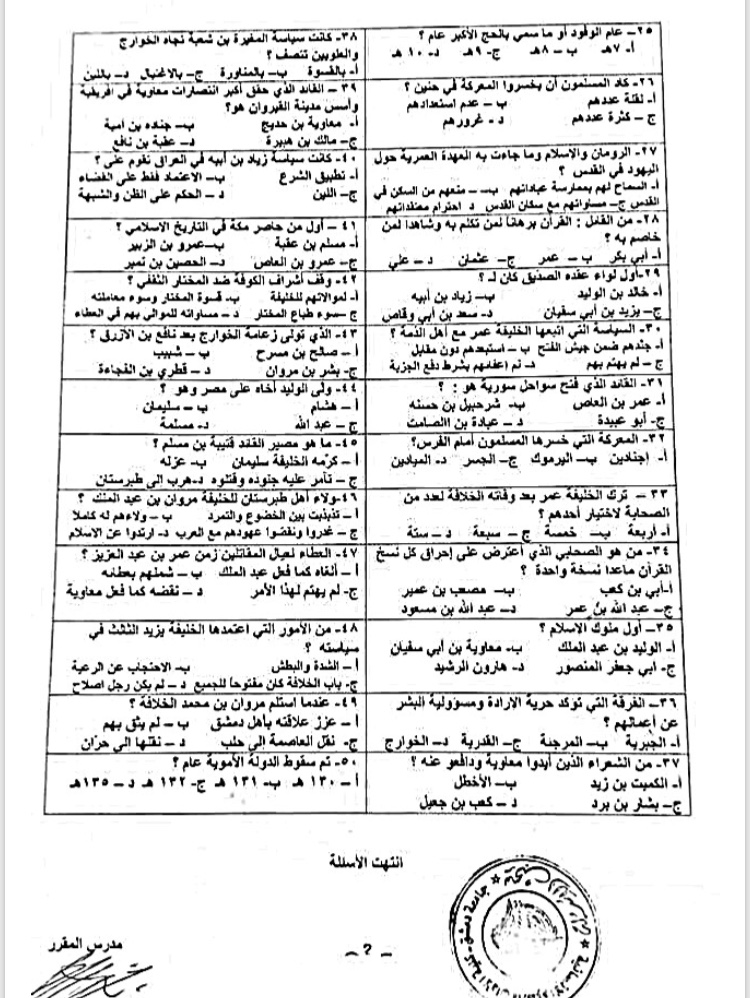 ٢٥- عام الوفود او ما سمي بالحج الأكبر عام ؟
أ- ٧هـ ب - ٨هـ ج- ٩هـ د- ١٠ هـ
٢٦- كاد المسلمون أن يخسروا المعركة في حنين ؟
أ- لقلة عددهم ب - عدم استعدادهم
ج - كثرة عددهم د - غرورهم
٢٧- الرومان والإسلام وما جاءت به العهدة العمرية حول
اليهود في القدس ؟
أ- السماح لهم بممارسة عباداتهم ب- منعهم من السكن في
القدس ج- مساواتهم مع سكان القدس د احترام معتقداتهم
٢٨- من القائل : القرآن برهاناً لمن تكلم به وشاهداً لمن
خاصم به ؟
أ- أبي بكر ب - عمر ج- عثمان د - علي
٢٩- أول لواء عقده الصديق كان لـ ؟
أ- خالد بن الوليد ب- زياد بن أبيه
ج- يزيد بن أبي سفيان د- سعد بن أبي وقاص
٣٠- السياسة التي اتبعها الخليفة عمر مع أهل الذمة ؟
أ- جندهم ضمن جيش الفتح ب - استبعدهم دون مقابل
ج - لم يهتم بهم د- تم إعفائهم بشرط دفع الجزية
٣١- القائد الذي فتح سواحل سورية هو : ؟
أ- عمر بن العاص ب- شرحبيل بن حسنه
ج- أبو عبيدة د - عبادة بن االصامت
٣٢- المعركة التي خسرها المسلمون أمام الفرس؟
أ- إجنادين ب- اليرموك ج- الجسر د- الميادين
٣٣ - ترك الخليفة عمر بعد وفاته الخلافة لعدد من
الصحابة لاختيار أحدهم ؟
أ- أربعة ب- خمسة ج - سبعة د- ستة
٣٤- من هو الصحابي الذي أعترض على إحراق كل نسخ
القرآن ماعدا نسخة واحدة ؟
أ- أبي بن كعب ب- مصعب بن عمير
ج- عبد الله بن عمر د- عبد الله بن مسعود
٣٥- أول ملوك الاسلام ؟
أ- الوليد بن عبد الملك ب- معاوية بن أبي سفيان
ج- ابي جعفر المنصور د- هارون الرشيد
٣٦- الفرقة التي تؤكد حرية الإرادة ومسؤولية البشر
عن أعمالهم ؟
أ- الجبرية ب- المرجئة ج - القدرية د- الخوارج
٣٧- من الشعراء الذين أيدوا معاوية ودافعو عنه ؟
أ- الكميت بن زيد ب- الأخطل
ج- بشار بن برد د- كعب بن جعيل
٣٨- كانت سياسة المغيرة بن شعبة تجاه الخوارج
والعلويين تتصف ؟
أ- بالقسوة ب- بالمناورة ج- بالاغتيال د- باللين
٣٩ - القائد الذي حقق أكبر انتصارات معاوية في افريقية
وأسس مدينة القيروان هو؟
أ- معاوية بن حديج ب- جناده بن امية
ج- مالك بن هبيرة د- عقبة بن نافع
٤٠- كانت سياسة زياد بن أبيه في العراق تقوم على ؟
أ- تطبيق الشرع ب- الاعتماد فقط على القضاء
ج- اللين د- الحكم على الظن والشبهة
٤١ - أول من حاصر مكة في التاريخ الاسلامي ؟
أ- مسلم بن عقبة ب- عمرو بن الزبير
ج- عمرو بن العاص د- الحصين بن نمير
٤٢- وقف أشراف الكوفة ضد المختار الثقفي ؟
أ- لموالاتهم للخليفة ب- قسوة المختار وسوء معاملته
ج- سوء طباع المختار د- مساواته للموالي بهم في العطاء
٤٣- الذي تولى زعامة الخوارج بعد نافع بن الأزرق ؟
أ - صالح بن مسرح ب - شبيب
ج- بشر بن مروان د- قطري بن الفجاءة
٤٤- ولى الوليد أخاه على مصر وهو ؟
أ - هشام ب - سليمان
ج - عبد الله د- مسلمة
٤٥- ما هو مصير القائد قتيبة بن مسلم ؟
أ - كرّمه الخليفة سليمان ب- عزله
ج - تآمر عليه جنوده وقتلوه د- هرب الى طبرستان
٤٦- ولاء أهل طبرستان للخليفة مروان بن عبد الملك ؟
أ - تذبذبت بين الخضوع والتمرد ب - ولاءهم له كاملا
ج - غدروا ونقضوا عهودهم مع العرب د- ارتدوا عن الاسلام
٤٧- العطاء لعيال المقاتلين زمن عمر بن عبد العزيز ؟
أ - ألغاه كما فعل عبد الملك ب - شملهم بعطائه
ج- لم يهتم لهذا الأمر د- نقضه كما فعل معاوية
٤٨- من الأمور التي اعتمدها الخليفة يزيد الثالث في
سياسته ؟
أ - الشدة والبطش ب- الاحتجاب عن الرعية
ج- باب الخلافة كان مفتوحاً للجميع د- لم يكن رجل اصلاح
٤٩- عندما استلم مروان بن محمد الخلافة ؟
أ - عزز علاقته بأهل دمشق ب - لم يثق بهم
ج- نقل العاصمة إلى حلب د - نقلها الى حرّان
٥٠- تم سقوط الدولة الأموية عام ؟
أ - ١٣٠ هـ ب- ١٣١ هـ ج- ١٣٢ هـ د- ١٣٥هـ
انتهت الأسئلة
مدرس المقرر
- 2 -
جامعة دمشق